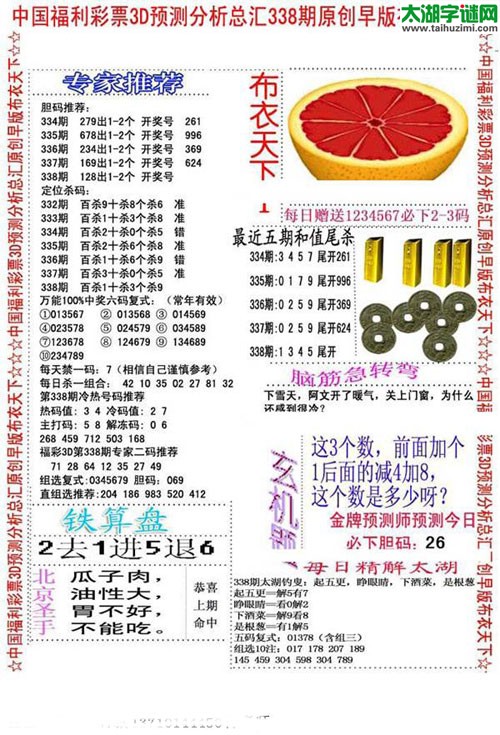 中国福利彩票3D预测分析总汇338期原创早版
太湖字谜网
www.taihuzimi.com
☆中国福利彩票3D预测分析总汇原创早版布衣天下☆
专家推荐
胆码推荐：
334期 279出1-2个 开奖号 261
335期 678出1-2个 开奖号 996
336期 234出1-2个 开奖号 369
337期 169出1-2个 开奖号 624
338期 128出1-2个 开奖号
定位杀码：
332期 百杀9十杀8个杀6 准
333期 百杀1十杀3个杀6 准
334期 百杀2十杀0个杀5 错
335期 百杀2十杀6个杀8 准
336期 百杀3十杀0个杀4 错
337期 百杀3十杀0个杀5 准
338期 百杀1十杀3个杀9
万能100%中奖六码复式：（常年有效）
①013567 ② 013568 ③ 014569
④023578 ⑤ 024579 ⑥ 034568
⑦123678 ⑧ 124679 ⑨ 134689
⑩234789
每天禁一码：7（相信自己谨慎参考）
每日杀一组合： 42 10 35 02 27 81 32
第338期冷热号码推荐
热码值：3 4 冷码值：2 7
主打码：5 8 解冻码：0 6
268 459 712 503 168
福彩3D第338期专家二码推荐
71 28 64 12 35 27 49
组选复式：0345679 胆码：069
直组选推荐：204 186 983 520 412
铁算盘
2去1进5退6
北京圣手
瓜子肉，
油性大，
胃不好，
不能吃。
恭喜
上期
命中
布衣天下
每日赠送1234567必下2-3码
最近五期和值尾杀
334期:3 4 5 7 尾开261
335期:0 1 7 9 尾开996
336期:0 2 5 9 尾开369
337期:0 2 5 9 尾开624
338期:1 3 4 5 尾开
脑筋急转弯
下雪天，阿文开了暖气，关上门窗，为什么
还感到很冷？
玄机
这3个数，前面加个
1后面的减4加8，
这个数是多少呀？
金牌预测师预测今日
必下胆码：26
每日精解太湖
338期太湖钓叟：起五更，睁眼睛，下酒菜，是根葱
起五更＝解5有7
睁眼睛＝看0解2
下酒菜＝解9看8
是根葱＝有1解5
五码复式：01378（含组三）
组选10注：017 178 207 189
145 459 304 598 304 789
☆中国福利彩票3D预测分析总汇原创早版布衣天下☆
彩票3D预测分析总汇 创早版布衣天下☆